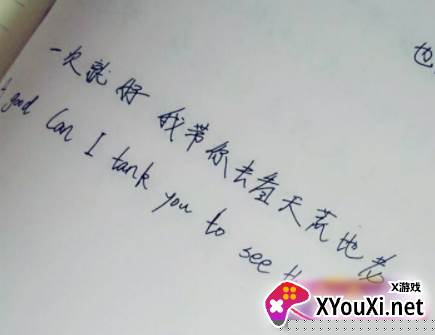 也
一次就好 我带你去看天荒地老
good Can I tank you to see
X游戏
XYouXi.net